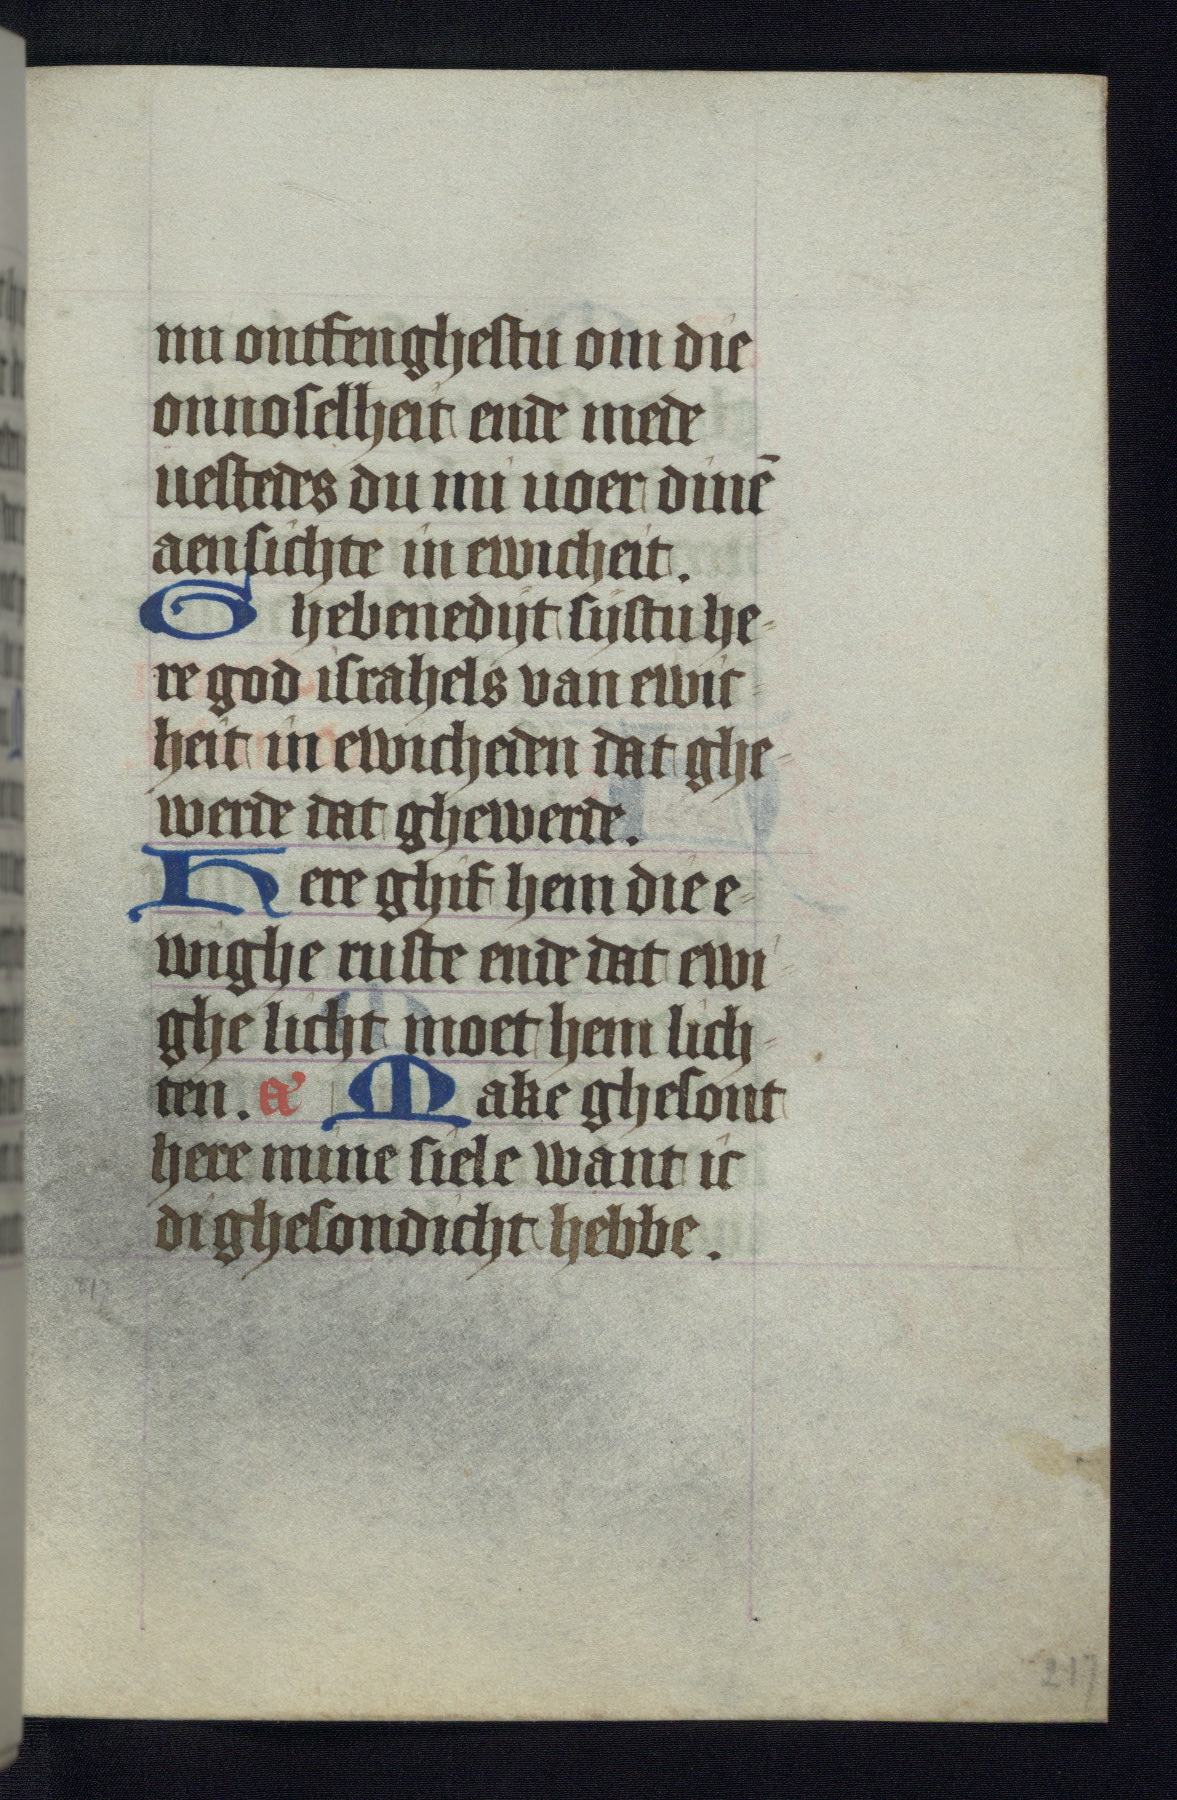 nu ontfenghestu om die
onnoselheit ende mede
uestedes du mi uoer dinē
aensichte in ewicheit.
Ghebenedijt sijstu he-
re god israhels van ewic-
heit in ewicheden dat ghe-
werde dat ghewerde.
Here ghif hem die e-
wighe ruste ende dat ewi-
ghe licht moet hem lich-
ten. a' Make ghesont
here mine siele want ic
di ghesondicht hebbe.
217